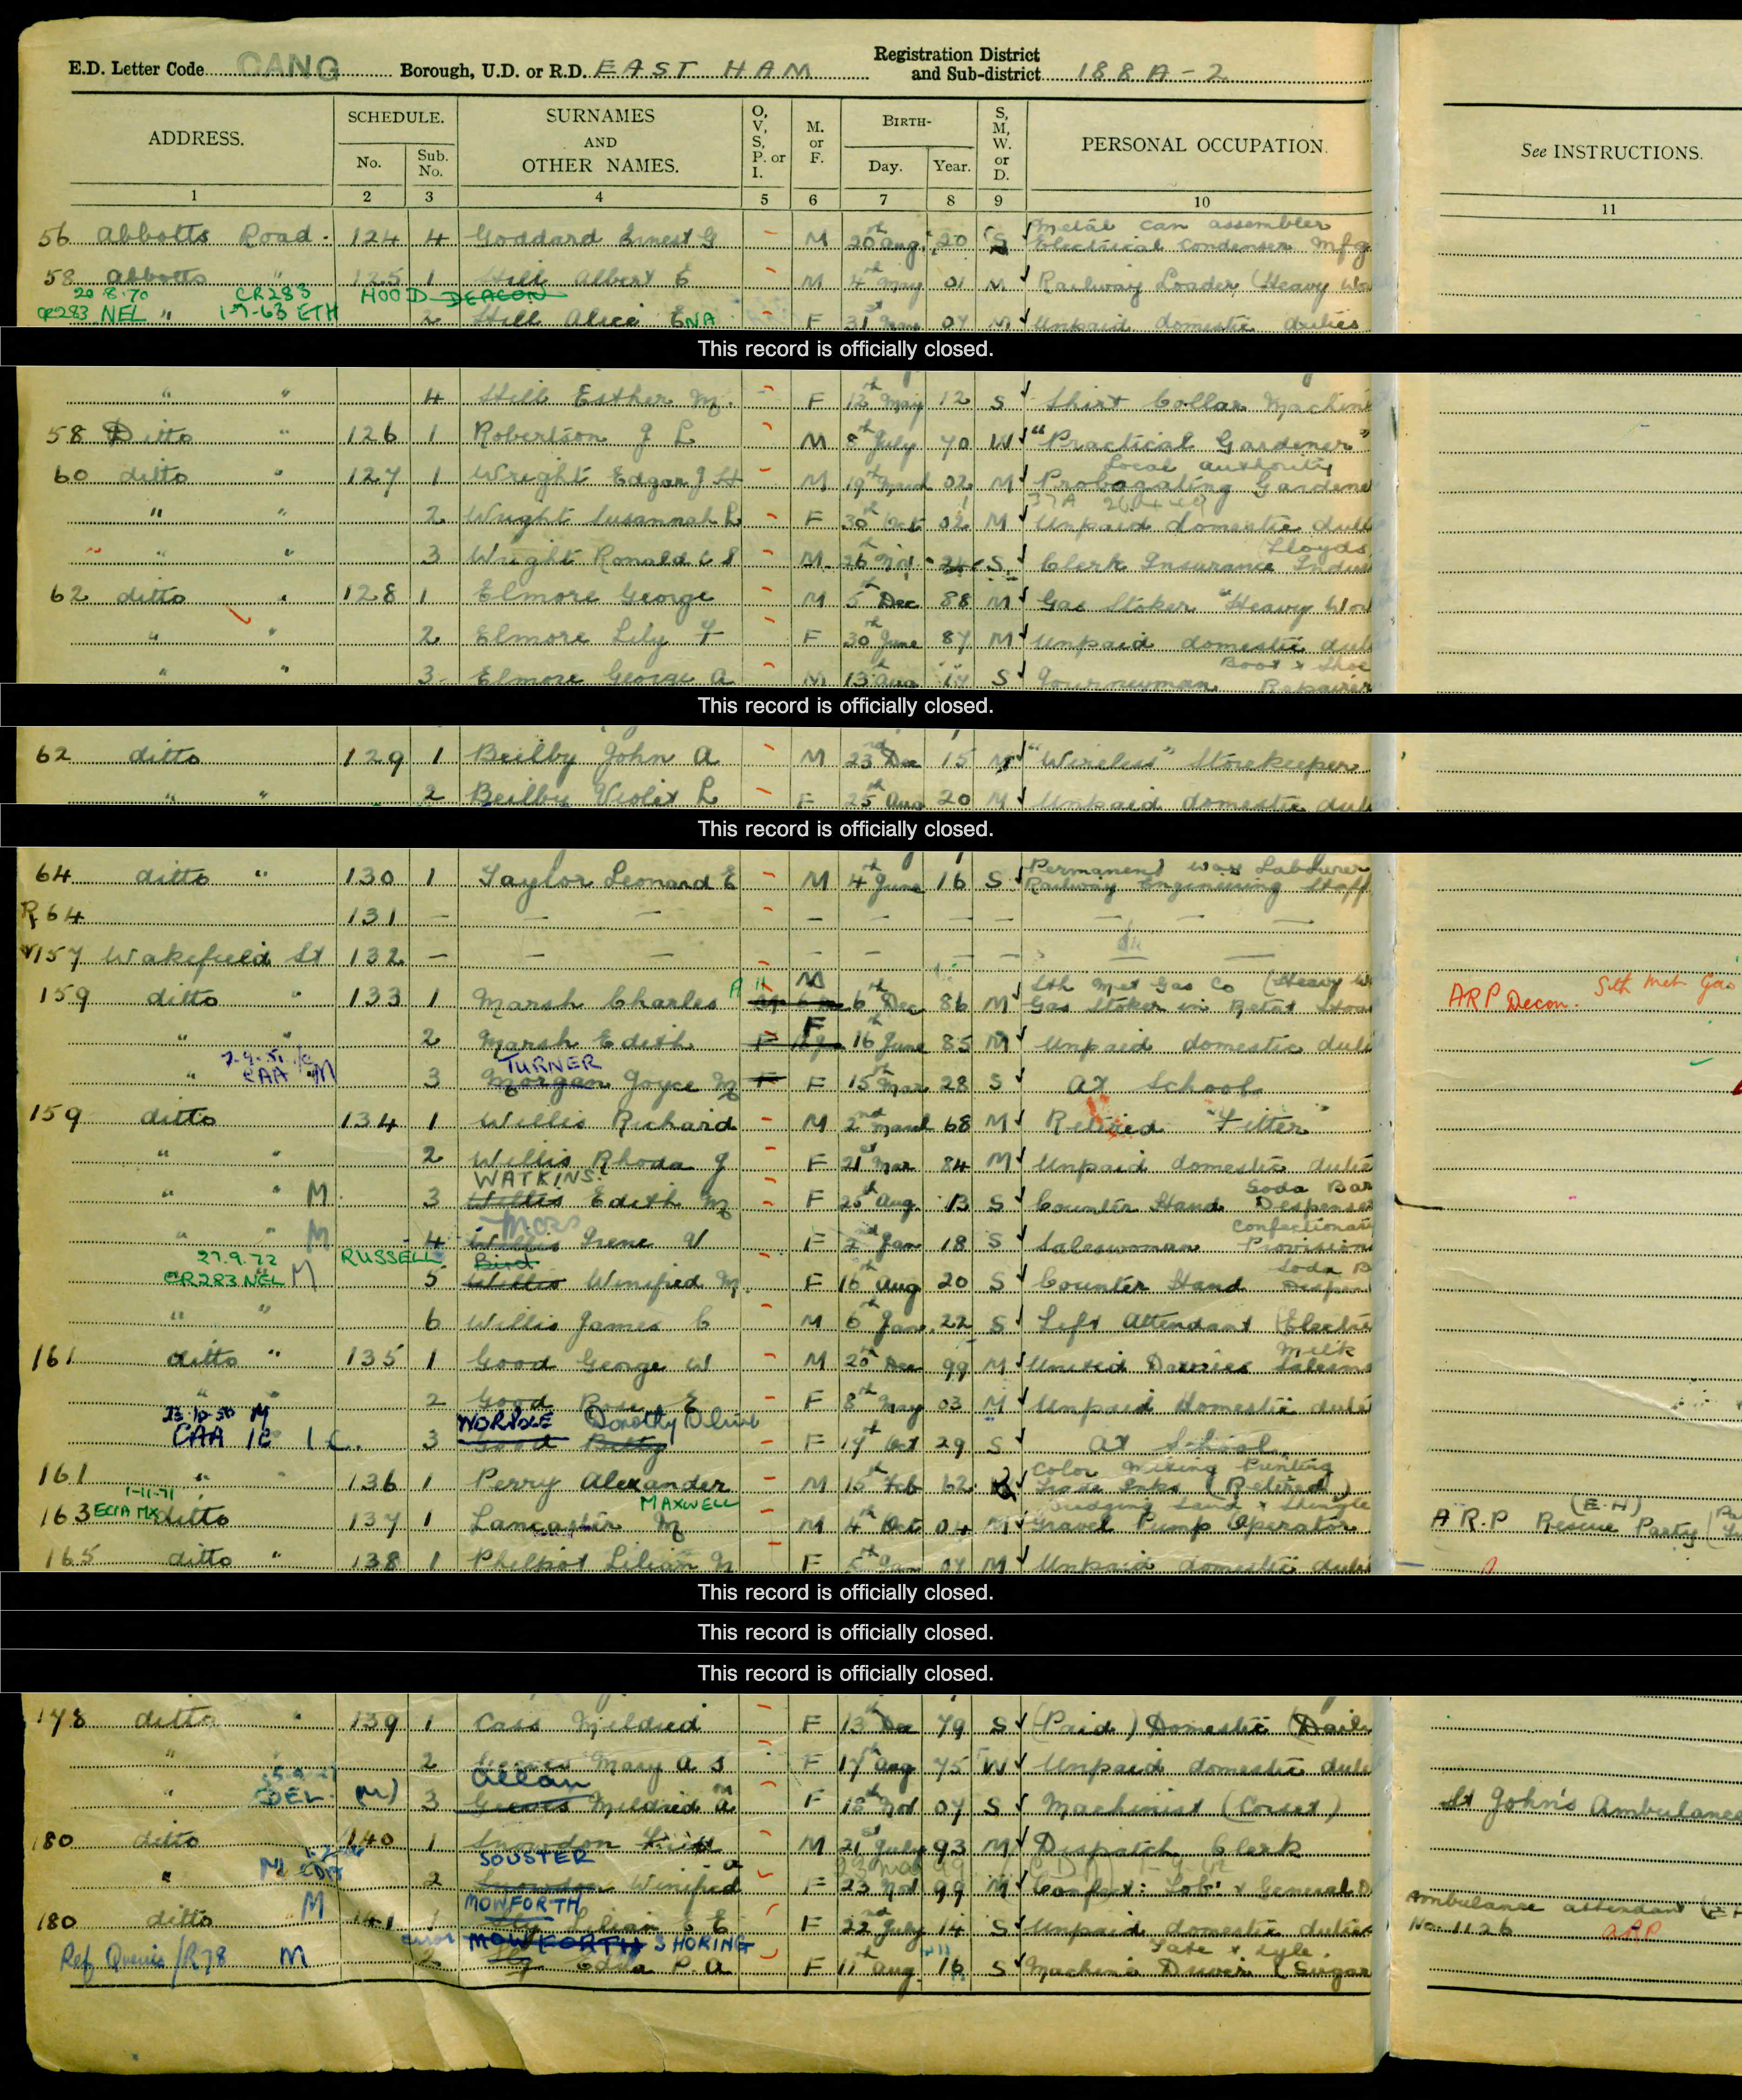 E.D. Letter Code OANG Borough, U.D. or R.D. EAST HAM Registration District and Sub-district 188 A - 2
ADDRESS. SCHEDULE. No. Sub. No. SURNAMES AND OTHER NAMES. O, V, S, P. or I. M. or F. BIRTH- Day. Year. S, M, W. or D. PERSONAL OCCUPATION. See INSTRUCTIONS.
1 2 3 4 5 6 7 8 9 10 11
Metal can assembler
56 Abbotts Road. 124 4 Goddard Ernest G - M 20th Aug. 20 S Electrical Condenser Mfg
58 Abbotts " 125 1 Hill Albert E - M 4th May 01 M Railway Loader (Heavy Wo
20.8.70 CR283 HOOD DEACON
CR283 NEL " 1-7-63 ETH 2 Hill Alice ENA F 31st 07 M Unpaid domestic duties
This record is officially closed.
" " 4 Hill Esther M. - F 12th May 12 S Shirt Collar Machini
58 Ditto " 126 1 Robertson J L - M 8th July 70 W "Practical Gardener"
Local authority
60 ditto " 127 1 Wright Edgar J H - M 19th March 02 M Propagating Gardene
" " 2 Wright Susannah L - F 30th Oct 02 M Unpaid domestic duti
Lloyds
" " 3 Wright Ronald C S - M 26th Nov 24 S Clerk Insurance Indus
62 ditto " 128 1 Elmore George - M 5th Dec 88 M Gas Stoker "Heavy Wor
" " 2 Elmore Lily F - F 30th June 87 M Unpaid domestic duti
Boot & Shoe
" " 3 Elmore George A - M 13th Aug 14 S Journeyman Repairer
This record is officially closed.
62 ditto 129 1 Beilby John A - M 23rd Dec 15 M "Wireless" Storekeeper
" " 2 Beilby Violet L - F 25th Aug 20 M Unpaid domestic duti
This record is officially closed.
Permanent way Labourer
64 ditto " 130 1 Taylor Leonard E - M 4th June 16 S Railway Engineering Staff
R 64 131 - - - - - - - -
157 Wakefield St 132 - - - - - - - -
Sth Met Gas Co (Heavy W
159 ditto " 133 1 Marsh Charles A H M 6th Dec 86 M Gas Stoker in Retort Hous ARP Decon. Sth Met Gas
" " 2 Marsh Edith F 16th June 85 M Unpaid domestic duti
7.9.51 TURNER
" CAA M 3 Morgan Joyce M F F 15th Mar 28 S At School
159 ditto 134 1 Willis Richard - M 2nd March 68 M Retired "Fitter"
" " 2 Willis Rhoda J - F 21st Mar 84 M Unpaid domestic dutie
WATKINS. Soda Bar
" " M 3 Willis Edith M - F 25th Aug. 13 S Counter Hand Dispenser
Confectionary
" " M 4 Willis Irene V - F 2nd Jan 18 S Saleswoman Provision
27.9.72 RUSSELL Bird Soda B
CR283 NEL M 5 Willis Winifred M. F 16th Aug 20 S Counter Hand Dispen
" " 6 Willis James C - M 6th Jan. 22 S Lift Attendant (Electri
Milk
161 ditto " 135 1 Good George W - M 20th Dec 99 M United Dairies Salesma
" " 2 Good Rose E - F 8th May 03 M Unpaid Domestic duti
23.10.50 M WORDLE Dorothy
CAA 3 Good Betty - F 19th Oct 29 S At School.
Color Mixing Printing
161 " " 136 1 Perry Alexander - M 15th Feb 62 W Trade Inks (Retired)
1-11-71 MAXWELL Dredging Sand & Shingle
163 ditto 137 1 Lancaster M - M 4th Oct 04 M Gravel Pump Operator A.R.P Rescue Party (E.H)
165 ditto " 138 1 Phelpot Lilian M - F 5th Jan 07 M Unpaid domestic duti
This record is officially closed.
This record is officially closed.
This record is officially closed.
178 ditto " 139 1 Cass Mildred - F 13th Dec 79 S (Paid) Domestic (Dail
" 2 Mary A S - F 17th Aug 75 W Unpaid domestic duti
Allan
" DEL. M) 3 Groves Mildred A M - F 18th Nov 07 S Machinist (Corset) St John's Ambulance
180 ditto 140 1 Snowdon - M 21st July 93 M Despatch Clerk
SOUSTER
" M 2 Snowdon Winifred - F 23 Nov 99 M Confect: Tob: & General D
MOWFORTH Ambulance attendant
180 ditto M 141 1 Lilian E E F 22nd July 14 S Unpaid domestic duties No. 1126 ARP
error MOWFORTH SHORING Tate & Lyle.
Ref Queries/R78 M 2 Edna P. A F 11th Aug. 16 S Machine Driver (Sugar